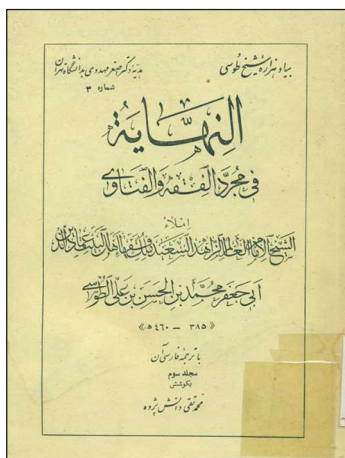 بیاد هزاره شیخ طوسی
هدیه دکتر اصغر مهدوی بدانشگاه تهران
شماره ۳
النهایة
فی مجرد الفقه والفتاوی
إملاء
الشیخ الإمام العالم الزاهد السعید
أبی جعفر محمد بن الحسن بن علی الطوسی
«۳۸۵ – ۴۶۰ ه»
با ترجمه فارسی آن
مجلد سوم
بکوشش
محمد تقی دانش پژوه